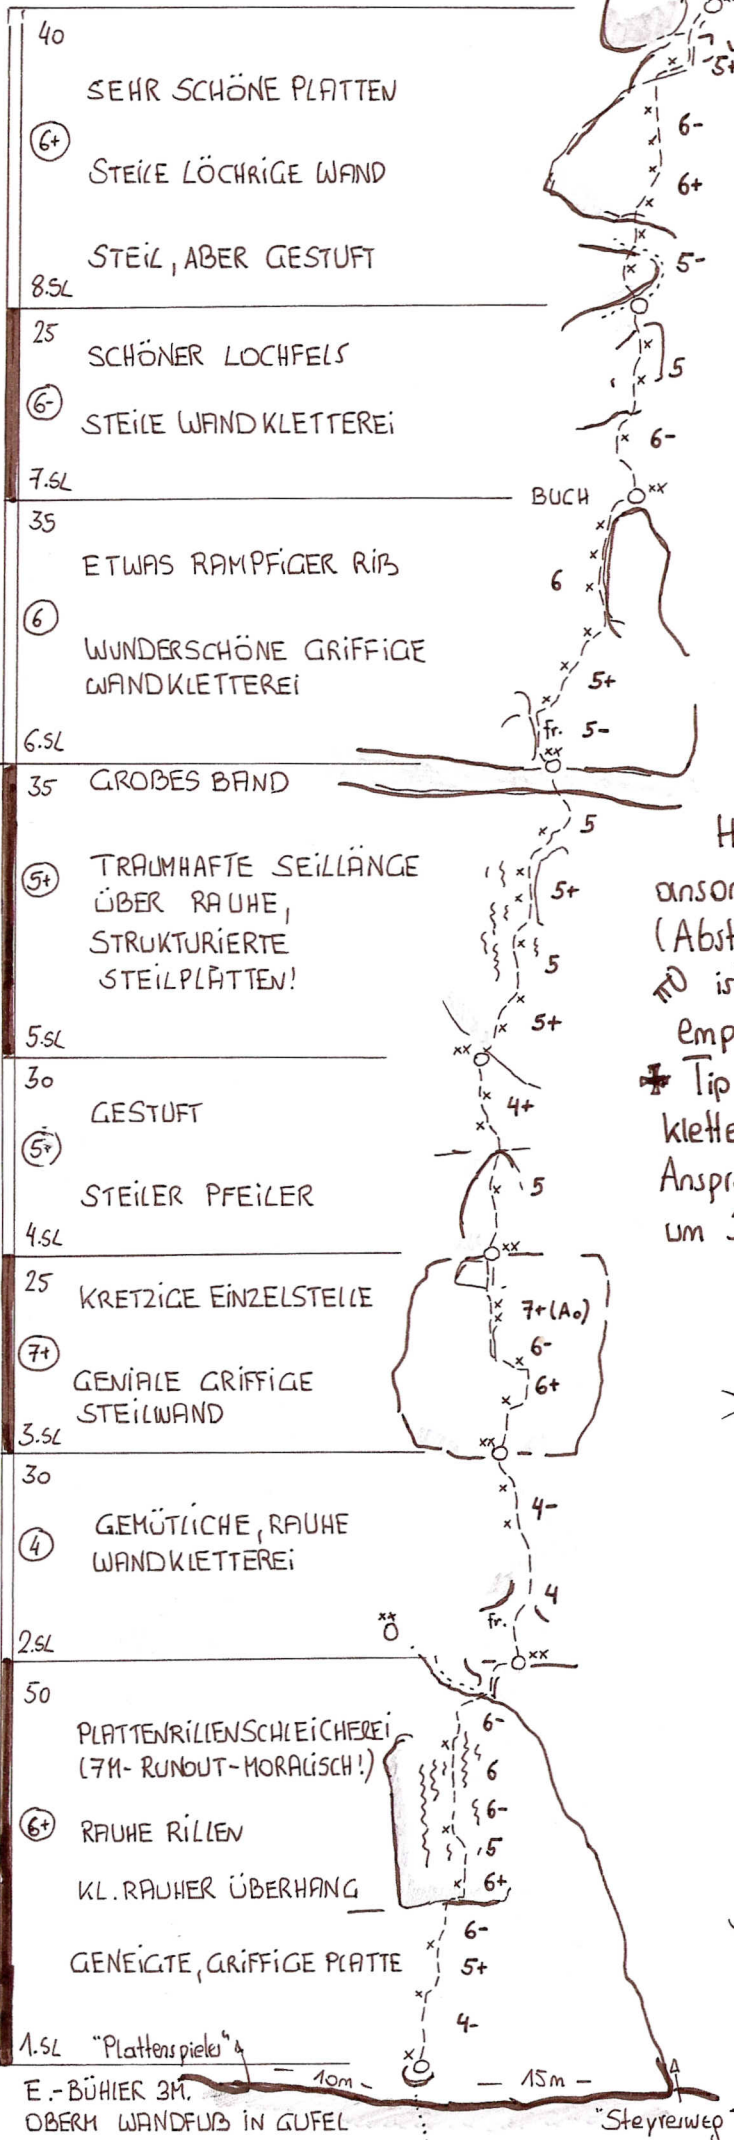 40
5+
SEHR SCHÖNE PLATTEN
6-
6+
STEILE LÖCHRIGE WAND
6+
STEIL, ABER GESTUFT
5-
8.SL
25
SCHÖNER LOCHFELS
5
6-
STEILE WANDKLETTEREI
6-
7.SL
BUCH
35
ETWAS RAMPFIGER RIß
6
6
WUNDERSCHÖNE GRIFFIGE
WANDKLETTEREI
5+
fr. 5-
6.SL
35
GROßES BAND
5
5+
TRAUMHAFTE SEILLÄNGE
ÜBER RAUHE,
STRUKTURIERTE
STEILPLATTEN!
5+
5
5+
5.SL
30
GESTUFT
4+
5+
STEILER PFEILER
5
4.SL
25
KRETZIGE EINZELSTELLE
7+(A0)
7+
6-
GENIALE GRIFFIGE
STEILWAND
6+
3.SL
30
4-
4
GEMÜTLICHE, RAUHE
WANDKLETTEREI
4
fr.
2.SL
50
PLATTENRILLENSCHLEICHEREI
(7M-RUNOUT-MORALISCH!)
6-
6
6-
6+
RAUHE RILLEN
5
KL. RAUHER ÜBERHANG
6+
6-
GENEIGTE, GRIFFIGE PLATTE
5+
4-
1.SL
"Plattenspieler"
10m
15m
E.-BÜHLER 3M.
OBERM WANDFUß IN GUFEL
"Steyrerweg"
(Abst
is
emp
Tip
klette
Anspr
um